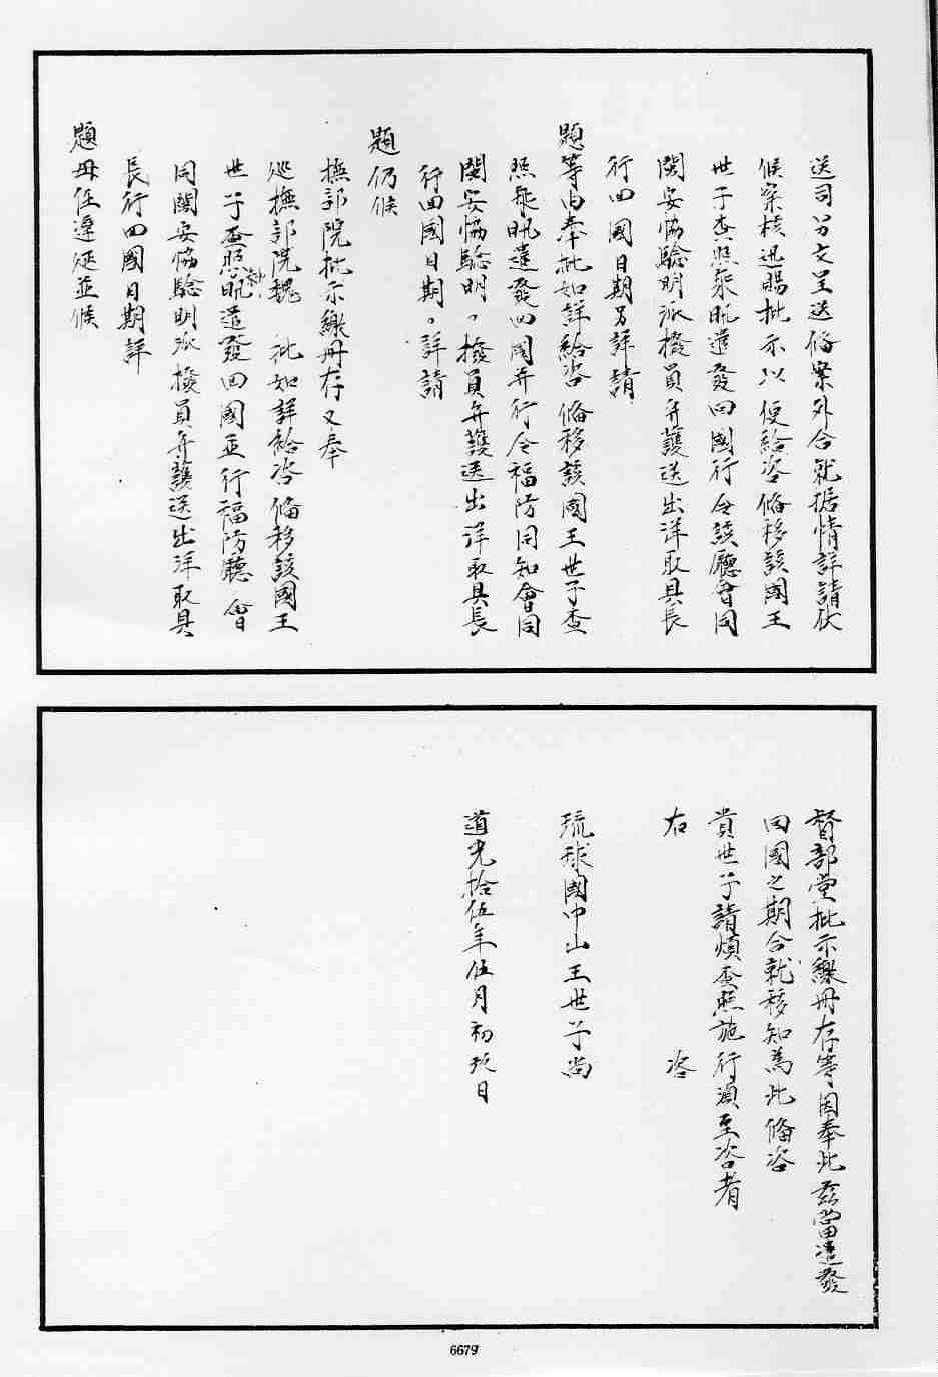 送司另文呈送俻案外合就据情詳請伏
候察核迅賜批示以便給咨俻移該國王
世子查照乘帆遣發回國行令該廳會同
閩安協驗明派撥員弁護送出洋取具長
行回國日期另詳請
題等由奉批如詳給咨俻移該國王世子查
照乘帆遣發回國并行令福防同知會同
閩安協驗明撥員弁護送出洋取具長
行回國日期詳請
題仍候
撫部院批示繳冊存又奉
巡撫部院魏 批如詳給咨俻移該國王
世子查照帆遣發回國並行福防廳會
同閩安協驗明派撥員弁護送出洋取具
長行回國日期詳
題毋任遲延並候
督部堂批示繳冊存等因奉此茲當遣發
回國之期合就移知為此俻咨
貴世子請煩查照施行須至咨者
右 咨
琉球國中山王世子尚
道光拾伍年伍月初 日
6679